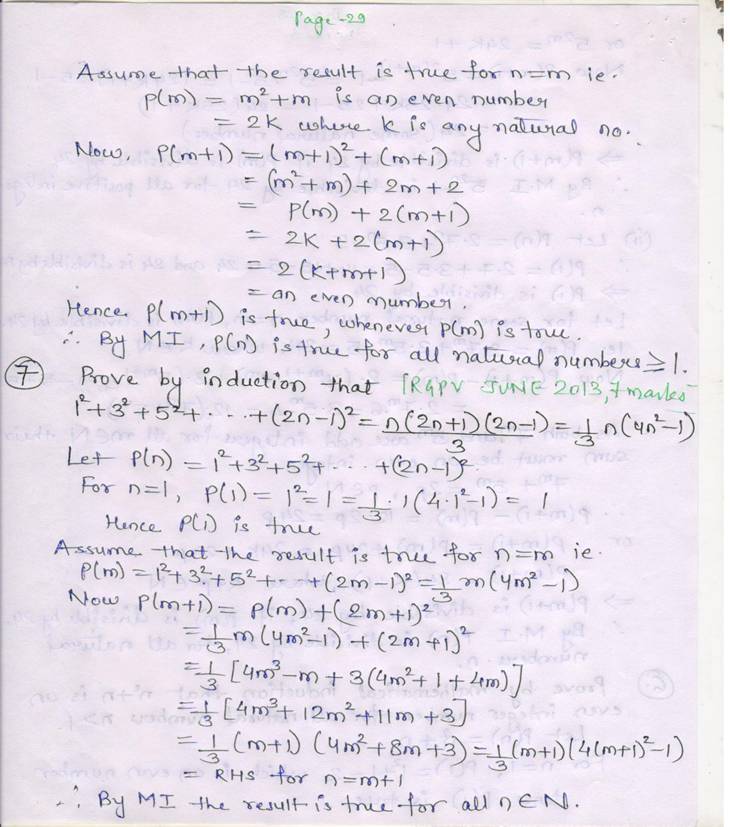 Page-29
Assume that the result is true for n=m ie.
P(m) = m²+m is an even number
= 2K where K is any natural no.
Now, P(m+1) = (m+1)²+(m+1)
= (m²+m)+2m+2
= P(m) + 2(m+1)
= 2K + 2(m+1)
= 2(K+m+1)
= an even number.
Hence P(m+1) is true, whenever P(m) is true.
∴ By MI, P(n) is true for all natural numbers ≥ 1.
⑦ Prove by induction that [RGPV JUNE 2013, 7 marks
1²+3²+5²+...+(2n-1)² = n(2n+1)(2n-1)/3 = 1/3 n(4n²-1)
Let P(n) = 1²+3²+5²+...+(2n-1)²
For n=1, P(1) = 1² = 1 = 1/3 · 1(4·1²-1) = 1
Hence P(1) is true
Assume that the result is true for n=m ie.
P(m) = 1²+3²+5²+...+(2m-1)² = 1/3 m(4m²-1)
Now P(m+1) = P(m)+(2m+1)²
= 1/3 m(4m²-1)+(2m+1)²
= 1/3 [4m³-m+3(4m²+1+4m)]
= 1/3 [4m³+12m²+11m+3]
= 1/3 (m+1)(4m²+8m+3) = 1/3 (m+1)(4(m+1)²-1)
= RHS for n=m+1
∴ By MI the result is true for all n∈N.